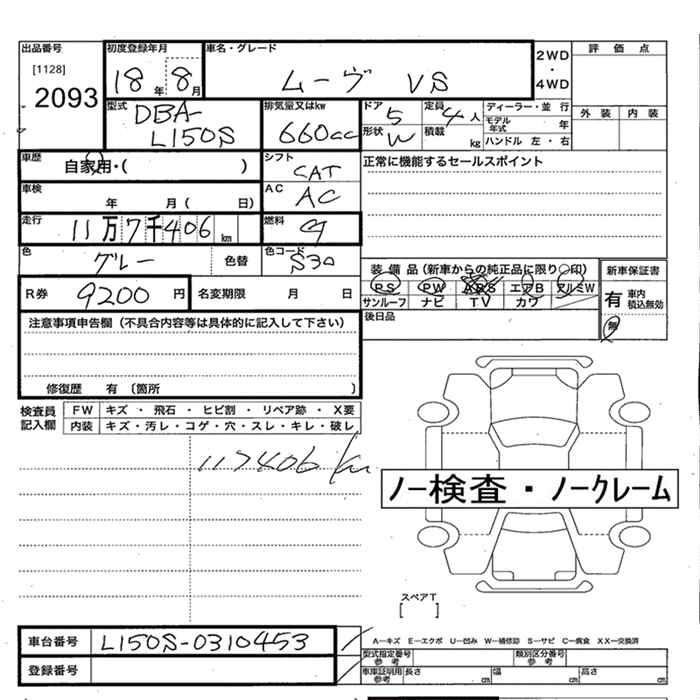 出品番号
[1128]
2093
初度登録年月
18 年 8 月
車名・グレード
ムーヴ VS
2WD
・
4WD
評価点
外装 内装
型式
DBA-
L150S
排気量又はkw
660cc
ドア 5
形状 W
定員 4 人
積載 kg
ディーラー・並行
モデル年式 年
ハンドル 左・右
車歴
自家用・( )
シフト
CAT
正常に機能するセールスポイント
車検
年 月( 日)
AC
AC
走行
11万7千406 km
燃料
ガ
色
グレー
色替
色コード
S30
装備品(新車からの純正品に限り〇印)
PS PW ABS エアB アルミW
サンルーフ ナビ TV カワ
新車保証書
有 車内積込無効
無
R券 9200 円
名変期限 月 日
後日品
注意事項申告欄(不具合内容等は具体的に記入して下さい)
修復歴 有 〔箇所 〕
検査員
記入欄
FW キズ・飛石・ヒビ割・リペア跡・X要
内装 キズ・汚レ・コゲ・穴・スレ・キレ・破レ
117406 km
ノー検査・ノークレーム
スペアT
[ ]
車台番号 L150S-0310453
登録番号
A―キズ E―エクボ U―凹み W―補修跡 S―サビ C―腐食 XX―交換済
型式指定番号 参考
類別区分番号 参考
車庫証明用 参考
長さ cm 幅 cm 高さ cm